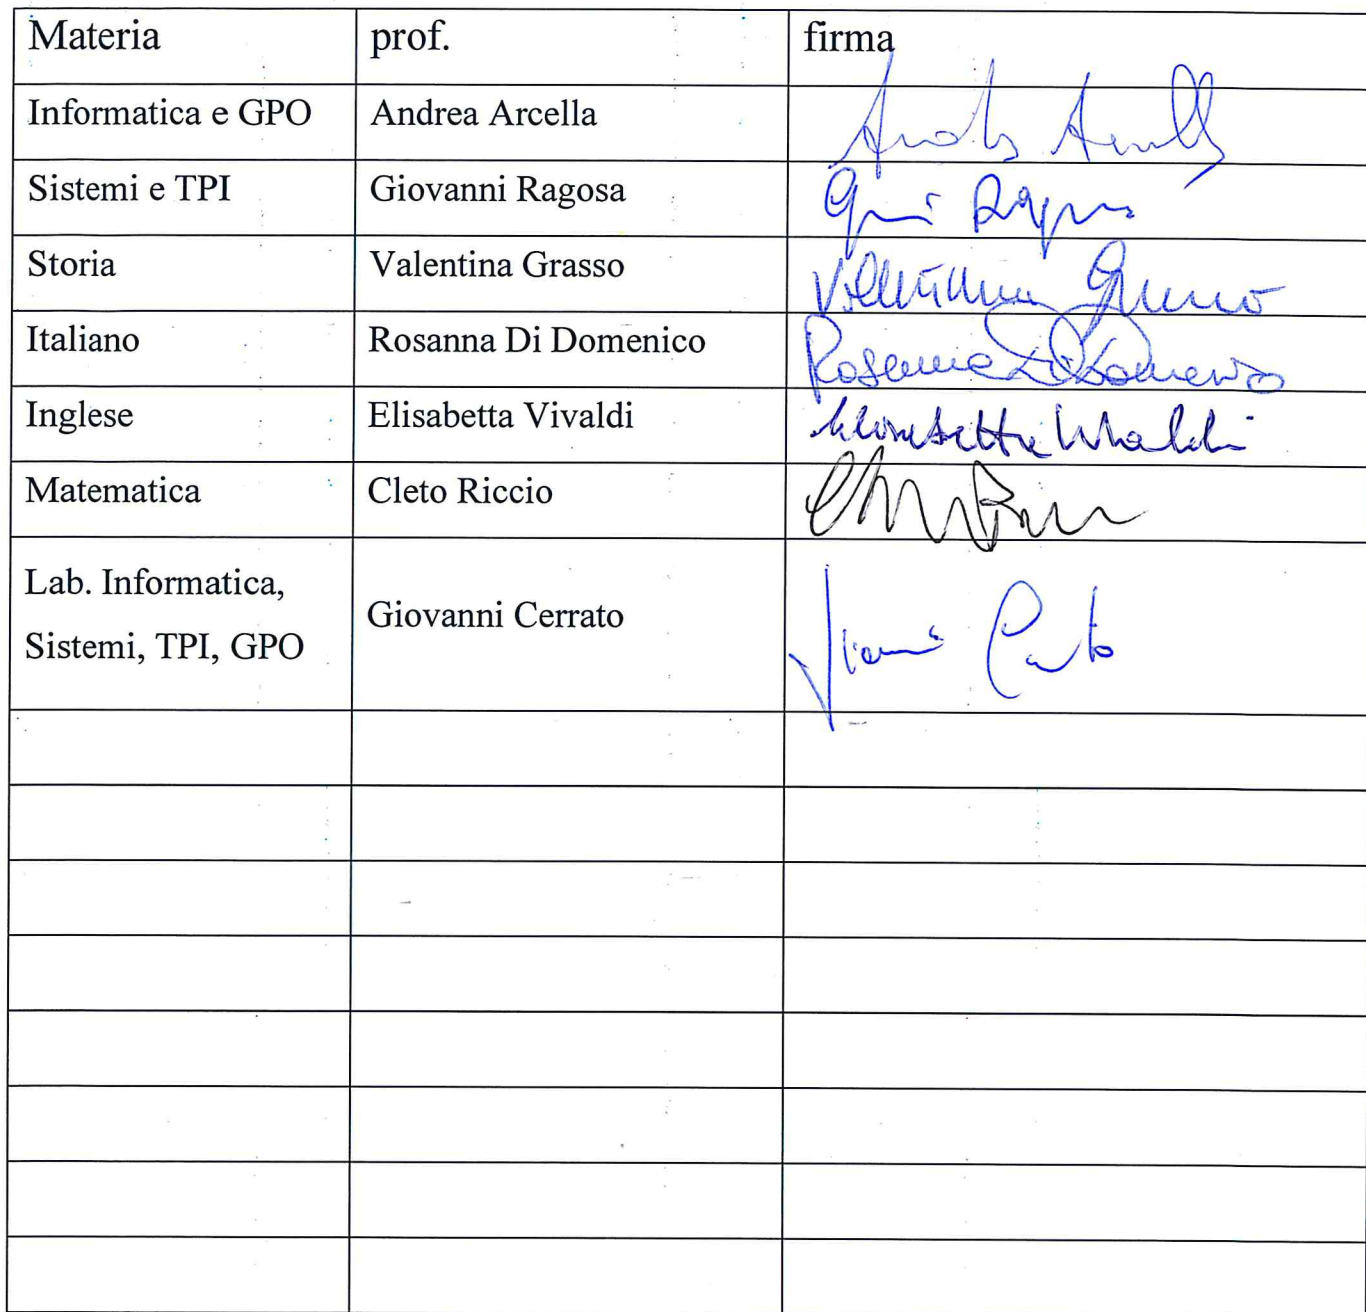 Materia prof. firma
Informatica e GPO Andrea Arcella
Sistemi e TPI Giovanni Ragosa
Storia Valentina Grasso Valentina Grasso
Italiano Rosanna Di Domenico Rosanna Di Domenico
Inglese Elisabetta Vivaldi Elisabetta Vivaldi
Matematica Cleto Riccio
Lab. Informatica,
Sistemi, TPI, GPO
Giovanni Cerrato